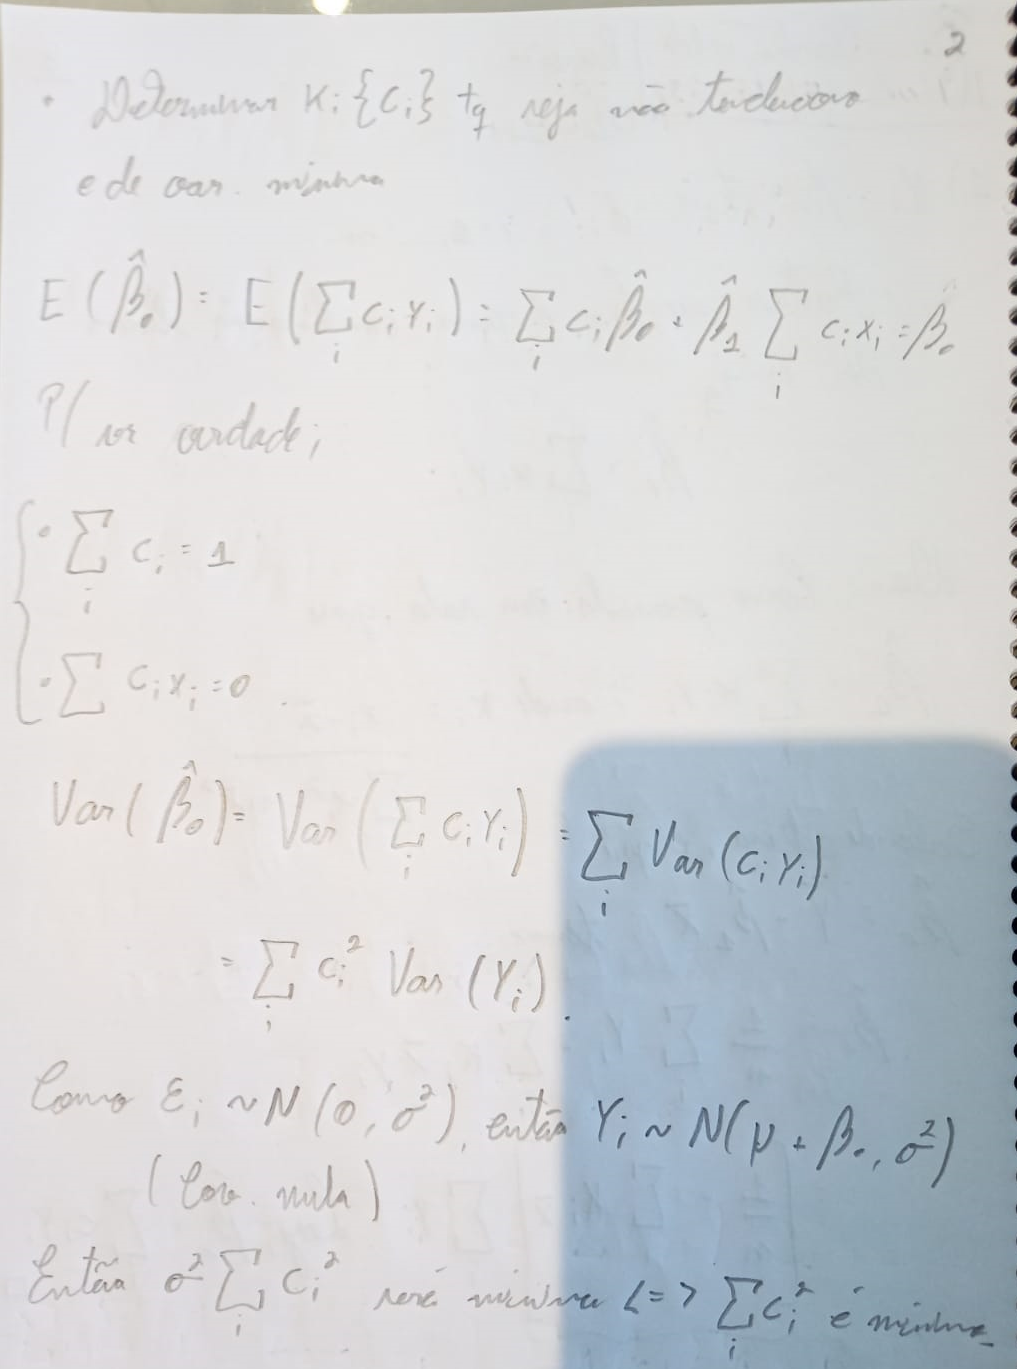 2
• Determinar K; {Ci} tq seja não tendencioso
e de var. mínima
E(β̂₀) = E(∑ᵢ cᵢ Yᵢ) = ∑ᵢ cᵢ β̂₀ + β̂₁ ∑ᵢ cᵢ xᵢ = β₀
P/ ser verdade;
• ∑ᵢ cᵢ = 1
• ∑ cᵢ xᵢ = 0.
Var(β̂₀) = Var(∑ᵢ cᵢ Yᵢ) = ∑ᵢ Var(cᵢ Yᵢ)
= ∑ᵢ cᵢ² Var(Yᵢ).
Como εᵢ ~ N(0, σ²), então Yᵢ ~ N(μ + β₀, σ²)
(Cov. nula)
Então σ² ∑ᵢ cᵢ² será mínima <=> ∑ᵢ cᵢ² é mínima